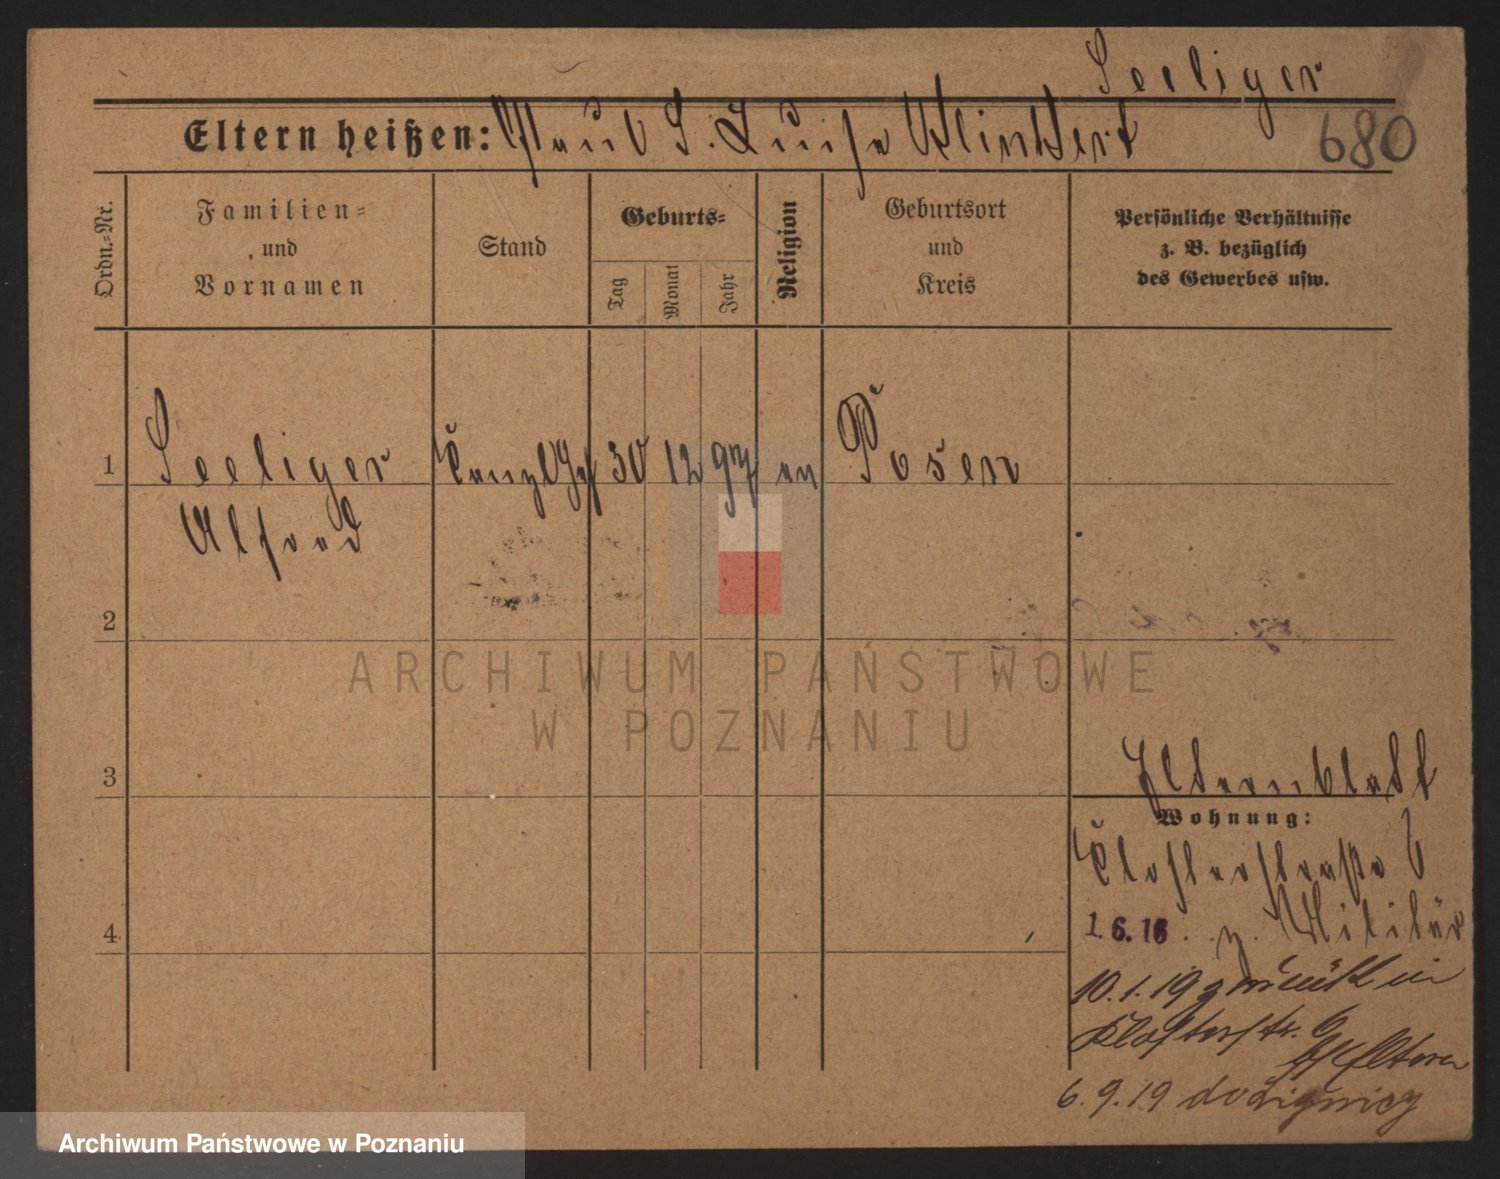 Seeliger
Eltern heißen: Paul S. Luise Klinkert
680
Ordn.=Nr.
Familien=
und
Vornamen
Stand
Geburts=
Tag
Monat
Jahr
Religion
Geburtsort
und
Kreis
Persönliche Verhältnisse
z. B. bezüglich
des Gewerbes usw.
1
Seeliger
Alfred
30 12 97 ev
Posen
2
3
Elternblatt
Wohnung:
Klosterstraße 6
4
1.6.16. z. Militär
10.1.19 zurück in
Klosterstr. 6
b/ Eltern
6.9.19 do Lignicy
ARCHIWUM PAŃSTWOWE
W POZNANIU
Archiwum Państwowe w Poznaniu